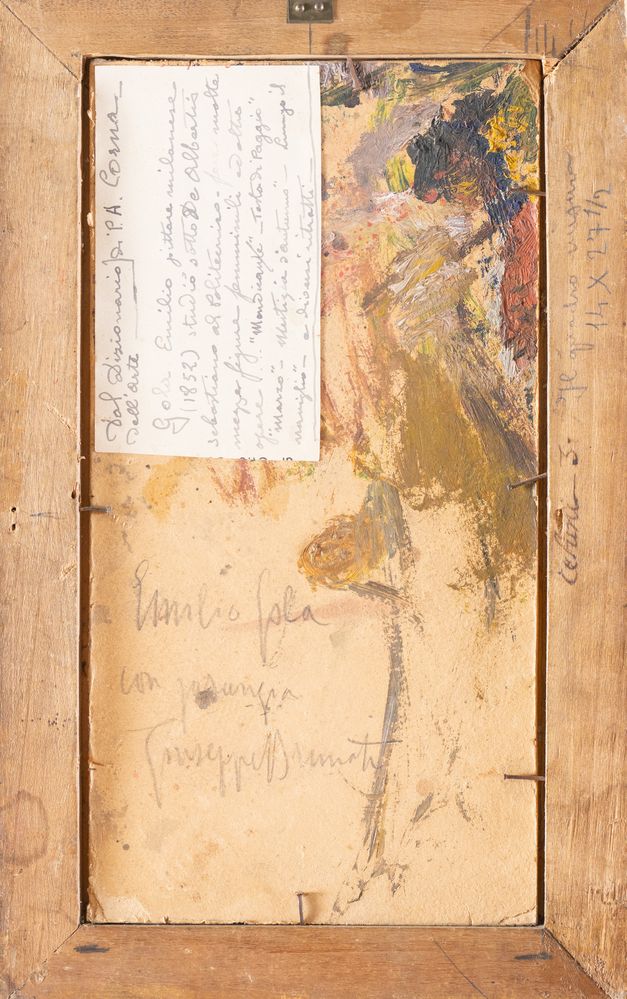 Dal Dizionario di P.A. Corna -
dell'Arte
Gola Emilio pittore milanese
(1852) studiò sotto De Albertis
Sebastiano al Politecnico - molte
mezze figure femminili ed altre
opere: "Mondicarne" - Testa di Paggio"
"marzo" - Mestizia d'autunno" - Lungo il
naviglio" - e diversi ritratti -
Emilio Gola
con
Giuseppe Brunati
3 - Il quadro misura
14 X 27 1/2